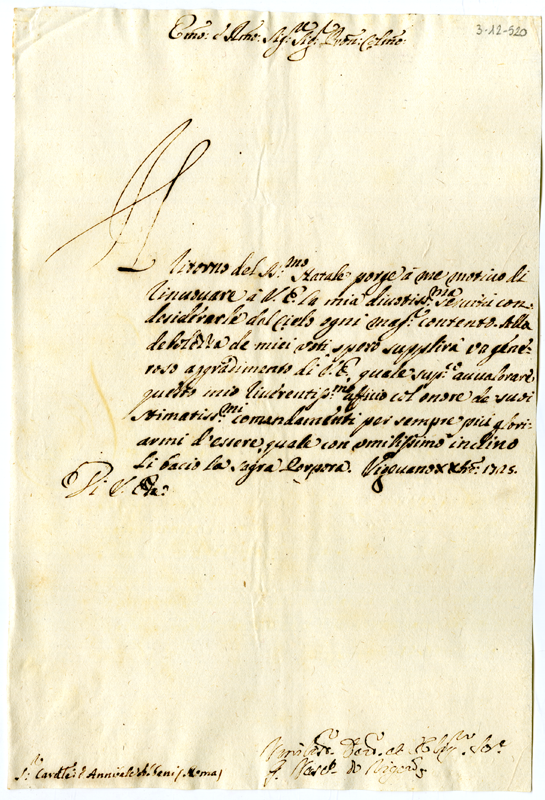 3-12-520
Emo: e Rmo: Sigr Sigr Pron: Colmo:
Il ritorno del Ss.mo Natale porge à me motivo di
rinuovare à V. E. la mia divotis.ma servitù con
desiderarle dal Cielo ogni mag.r contento. Alla
debolezza de miei voti spero supplirà un gene-
roso aggradimento di V. E., quale sup.co avvalorare
questo mio riverentis.mo affizio col onore de suoi
stimatiss.mi comandamenti per sempre più glori-
armi d'essere, quale con umilissimo inchino
Li bacio la Sagra Porpora. Vigevano Xbre: 1725.
Di V. Eza:
Sr. Cardle: Annibale Albani Roma
Vigevo